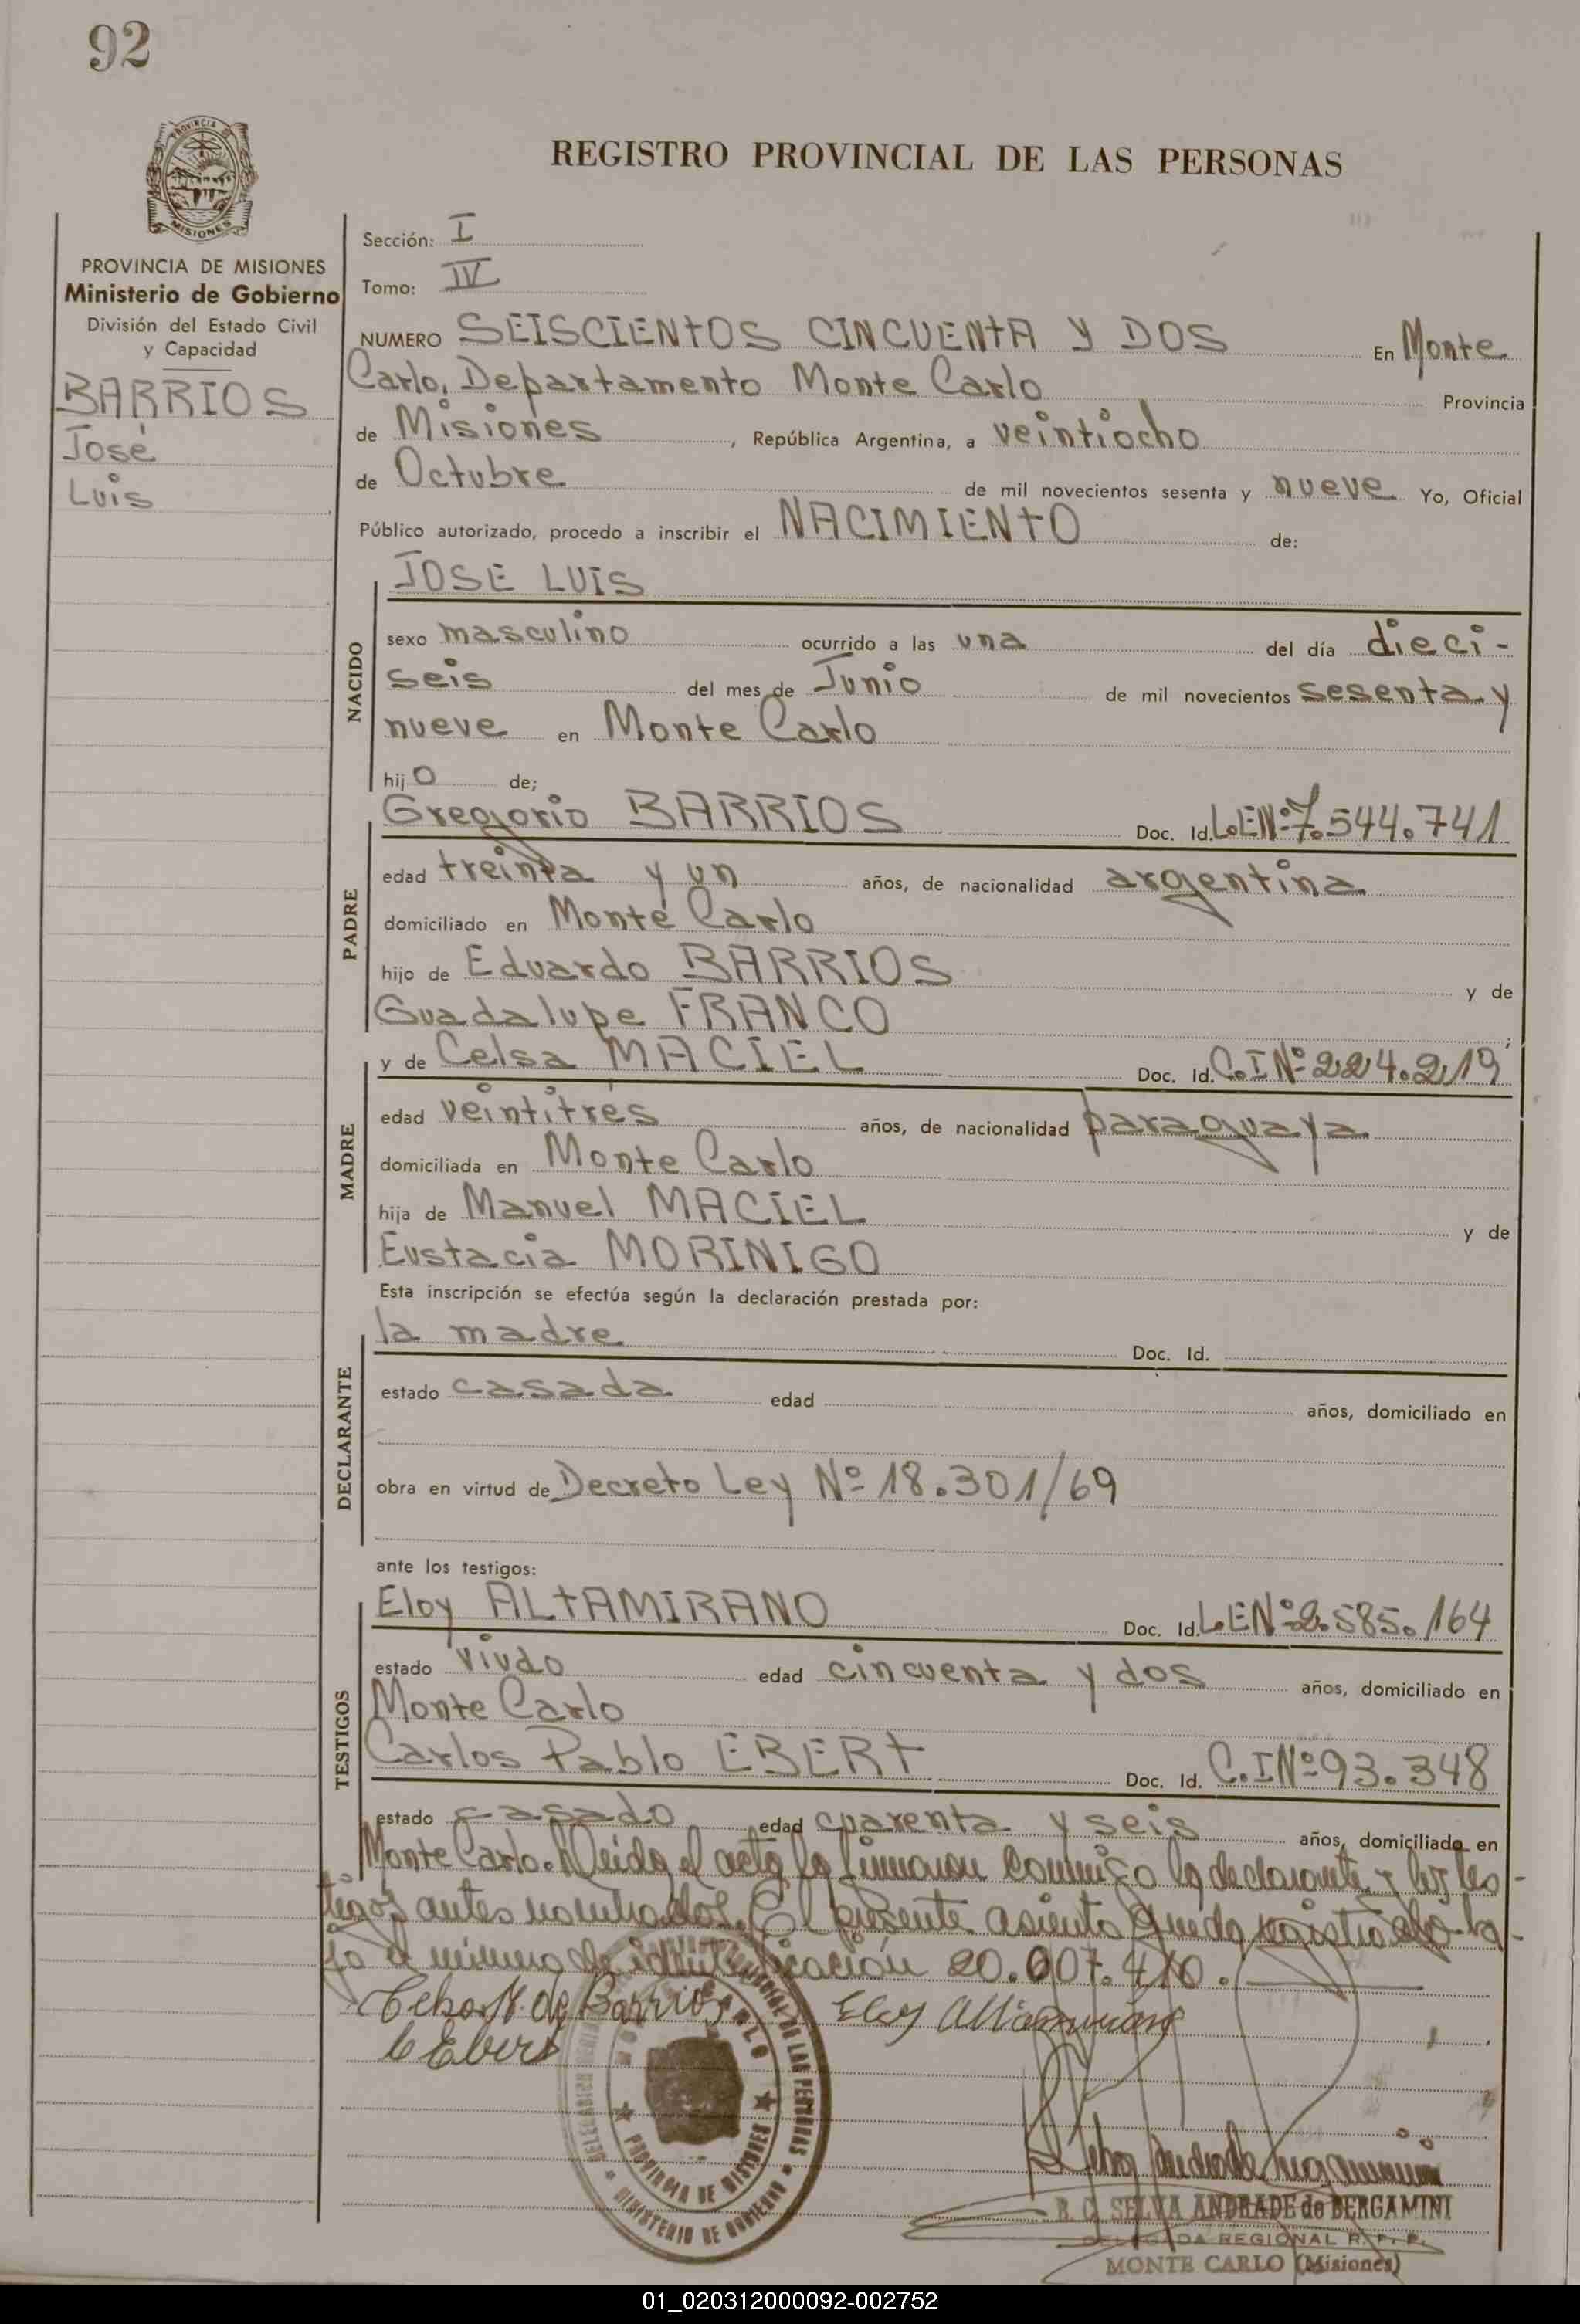 92
PROVINCIA DE
MISIONES
REGISTRO PROVINCIAL DE LAS PERSONAS
PROVINCIA DE MISIONES
Ministerio de Gobierno
División del Estado Civil
y Capacidad
BARRIOS
José
Luis
Sección: I
Tomo: IV
NUMERO SEISCIENTOS CINCUENTA Y DOS En Monte
Carlo, Departamento Monte Carlo Provincia
de Misiones, República Argentina, a veintiocho
de Octubre de mil novecientos sesenta y nueve Yo, Oficial
Público autorizado, procedo a inscribir el NACIMIENTO de:
NACIDO
JOSE LUIS
sexo masculino ocurrido a las una del día dieci-
seis del mes de Junio de mil novecientos sesenta y
nueve en Monte Carlo
hijo de;
PADRE
Gregorio BARRIOS Doc. Id. L.E.Nº 7.544.741
edad treinta y un años, de nacionalidad argentina
domiciliado en Monte Carlo
hijo de Eduardo BARRIOS y de
Guadalupe FRANCO;
MADRE
y de Celsa MACIEL Doc. Id. C.I Nº 224.219
edad veintitrés años, de nacionalidad paraguaya
domiciliada en Monte Carlo
hija de Manuel MACIEL y de
Eustacia MORINIGO
Esta inscripción se efectúa según la declaración prestada por:
DECLARANTE
la madre Doc. Id.
estado casada edad años, domiciliado en
obra en virtud de Decreto Ley Nº 18.301/69
ante los testigos:
TESTIGOS
Eloy ALTAMIRANO Doc. Id. L.E Nº 2.585.164
estado viudo edad cincuenta y dos años, domiciliado en
Monte Carlo
Carlos Pablo EBERT Doc. Id. C.I Nº 93.348
estado casado edad cuarenta y seis años, domiciliado en
Monte Carlo. Leida el acta la firmaron conmigo la declarante y los tes-
tigos antes nombrados. El presente asiento queda registrado ba-
jo el número de identificación 20.007.410.
Celsa M. de Barrios Eloy Altamirano
C Ebert
PROVINCIA DE MISIONES
MINISTERIO DE GOBIERNO
DE LAS PERSONAS
B. C. SELVA ANDRADE de BERGAMINI
DELEGADA REGIONAL R. P. P.
MONTE CARLO (Misiones)
01_020312000092-002752